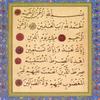 بسم الله الرحمن الرحيم
الحمد لله رب العالمين
الرحمن الرحيم ملك يوم الدين
إياك نعبد وإياك نستعين
اهدنا الصراط المستقيم
صراط الذين أنعمت عليهم غير
المغضوب عليهم ولا الضالين